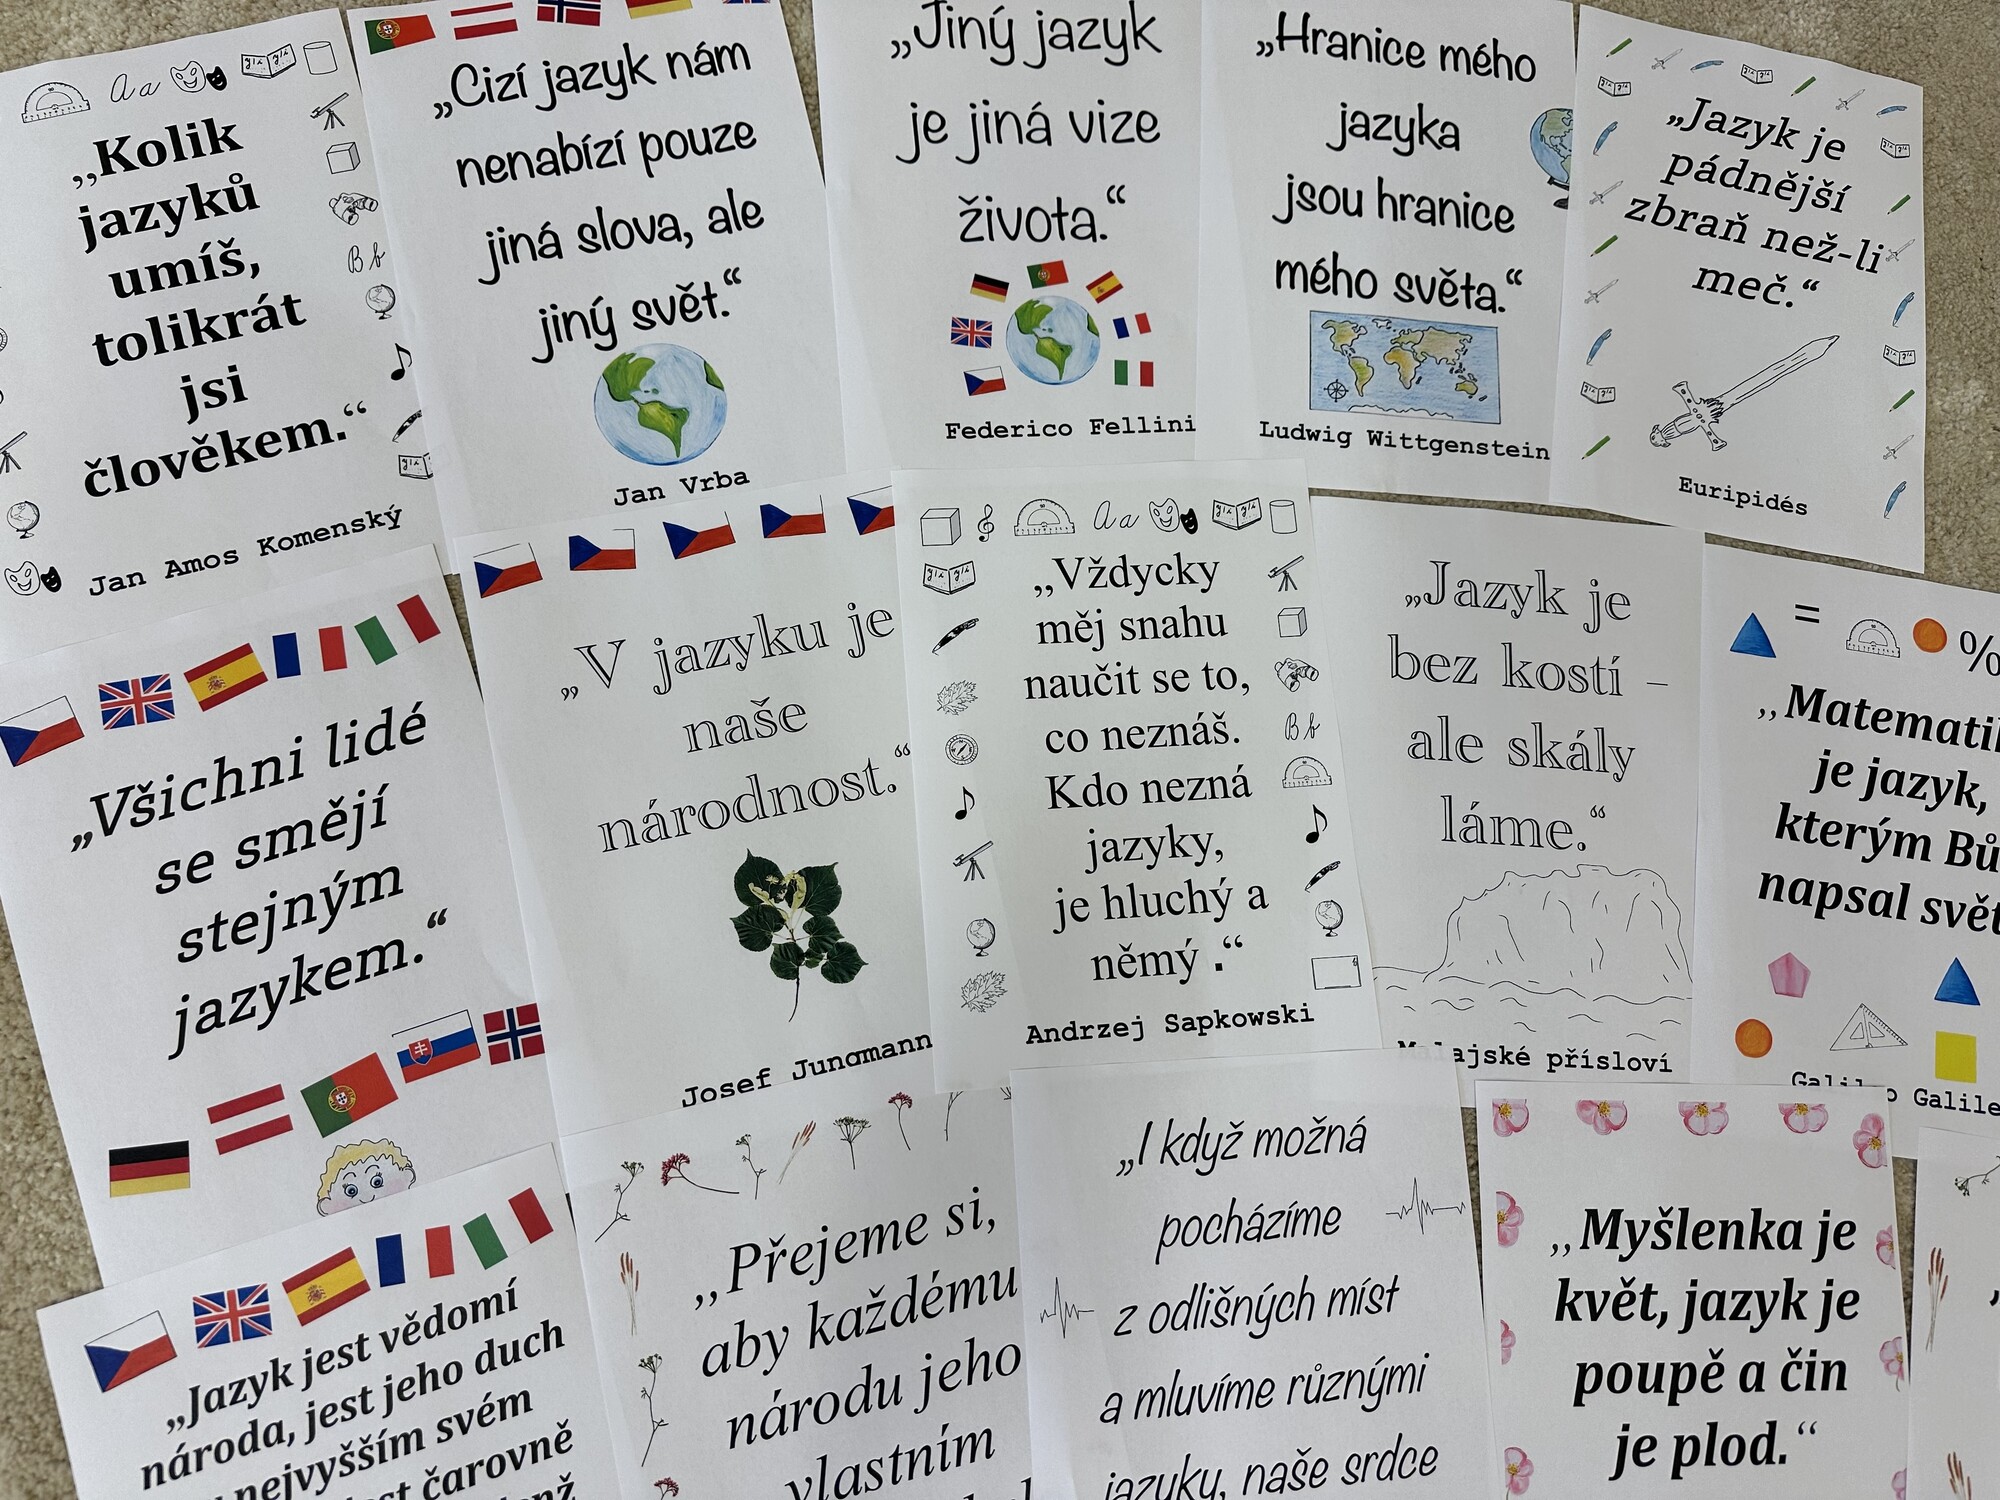 „Kolik
jazyků
umíš,
tolikrát
jsi
člověkem.“
Jan Amos Komenský
„Cizí jazyk nám
nenabízí pouze
jiná slova, ale
jiný svět.“
Jan Vrba
„Jiný jazyk
je jiná vize
života.“
Federico Fellini
„Hranice mého
jazyka
jsou hranice
mého světa.“
Ludwig Wittgenstein
„Jazyk je
pádnější
zbraň než-li
meč.“
Euripidés
„Všichni lidé
se smějí
stejným
jazykem.“
„V jazyku je
naše
národnost.“
Josef Jungmann
Aa
„Vždycky
měj snahu
naučit se to,
co neznáš.
Kdo nezná
jazyky,
je hluchý a
němý .“
Andrzej Sapkowski
Aa
Bb
Bb
„Jazyk je
bez kostí –
ale skály
láme.“
Malajské přísloví
= %
„Matemati
je jazyk,
kterým Bů
napsal svět
Galileo Galile
„Jazyk jest vědomí
národa, jest jeho duch
nejvyšším svém
čarovně
„Přejeme si,
aby každému
národu jeho
vlastním
„I když možná
pocházíme
z odlišných míst
a mluvíme různými
jazyky, naše srdce
„Myšlenka je
květ, jazyk je
poupě a čin
je plod.“